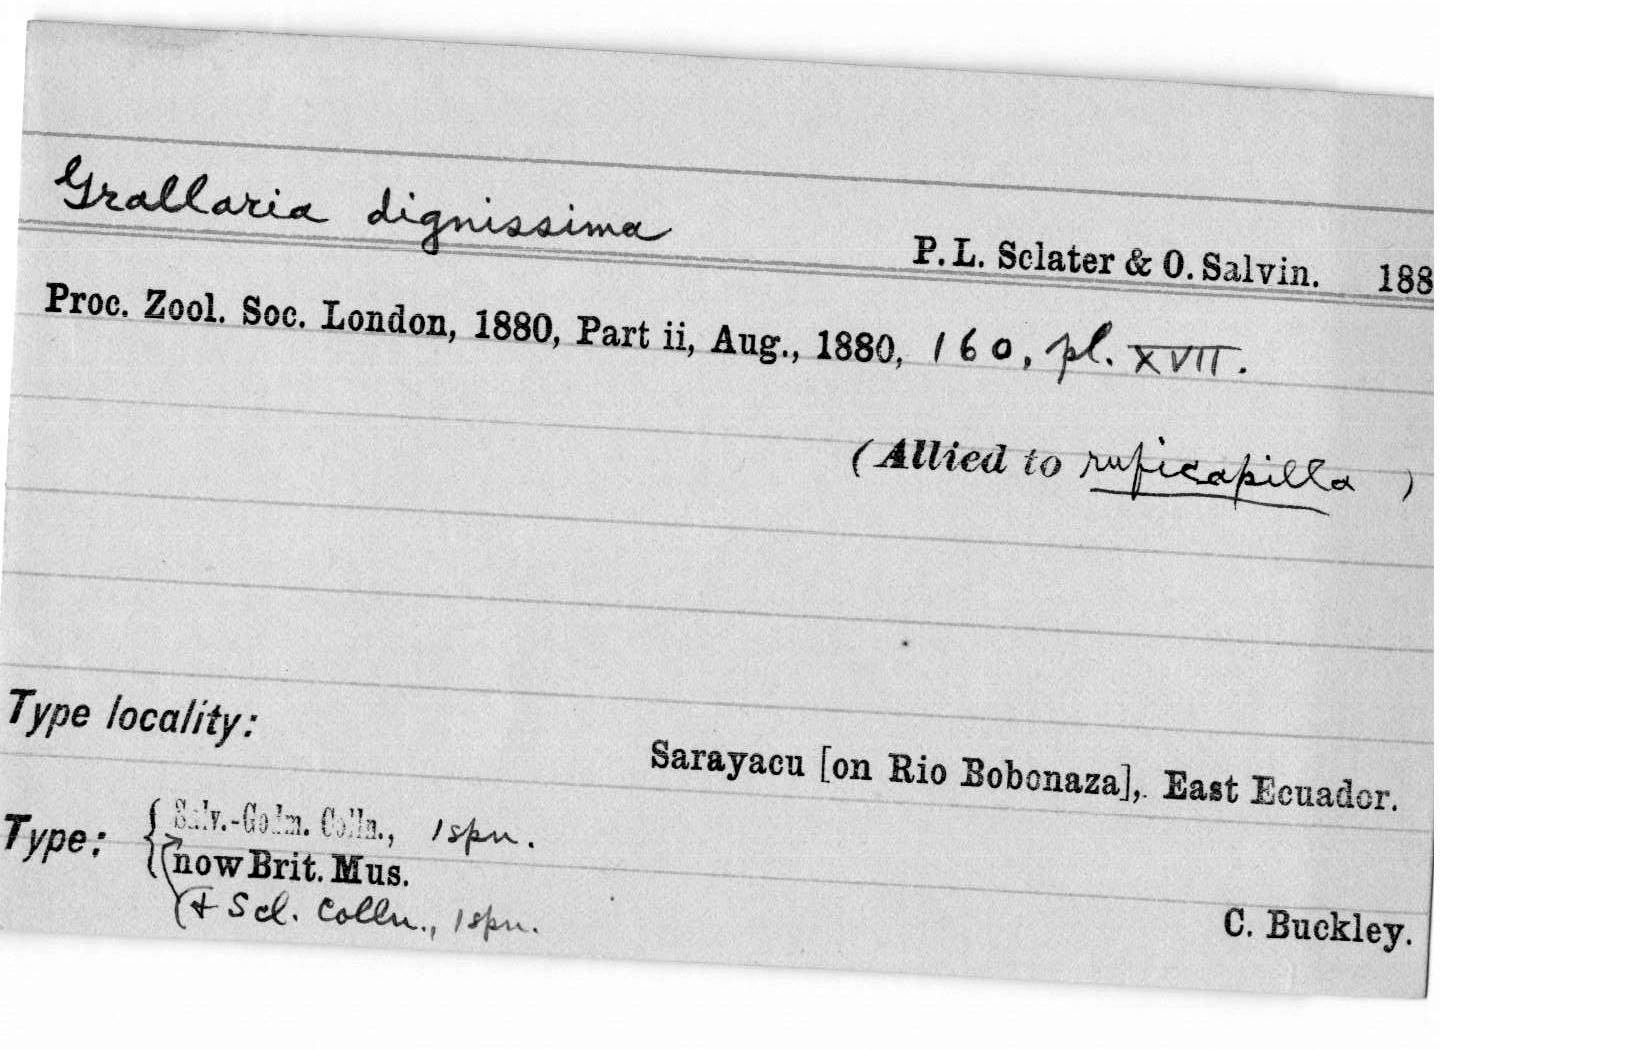 Grallaria dignissima
P. L. Sclater & O. Salvin. 188
Proc. Zool. Soc. London, 1880, Part ii, Aug., 1880, 160, pl. XVII.
(Allied to ruficapilla )
Type locality:
Sarayacu [on Rio Bobonaza], East Ecuador.
Type: { Salv.-Godm. Colln., 1 spn.
(now Brit. Mus.
(+ Scl. Colln., 1 spn.
C. Buckley.